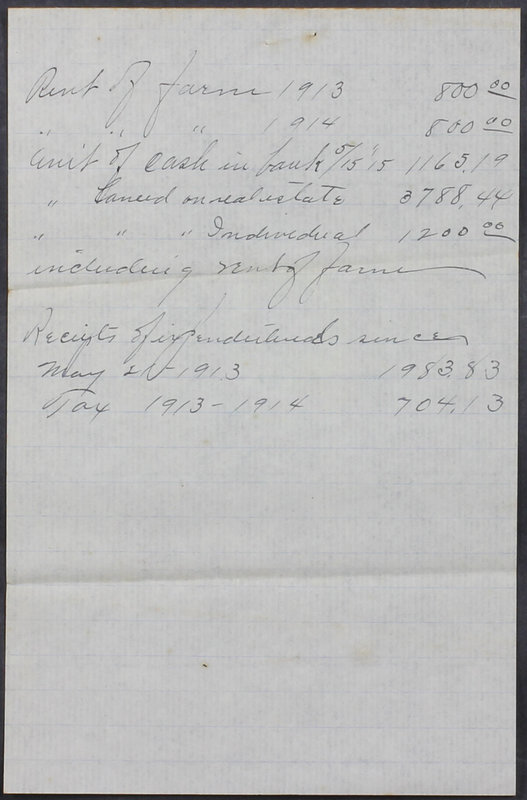 Rent of farm 1913 800 00
" " " 1914 800 00
Amt of cash in bank 5/15 15 1165.19
" Loaned on real estate 3788.44
" " " Individual 1200 00
including rent of farm
Receipts of expenditures since
May 21 - 1913 1983.83
Tax 1913 - 1914 704.13